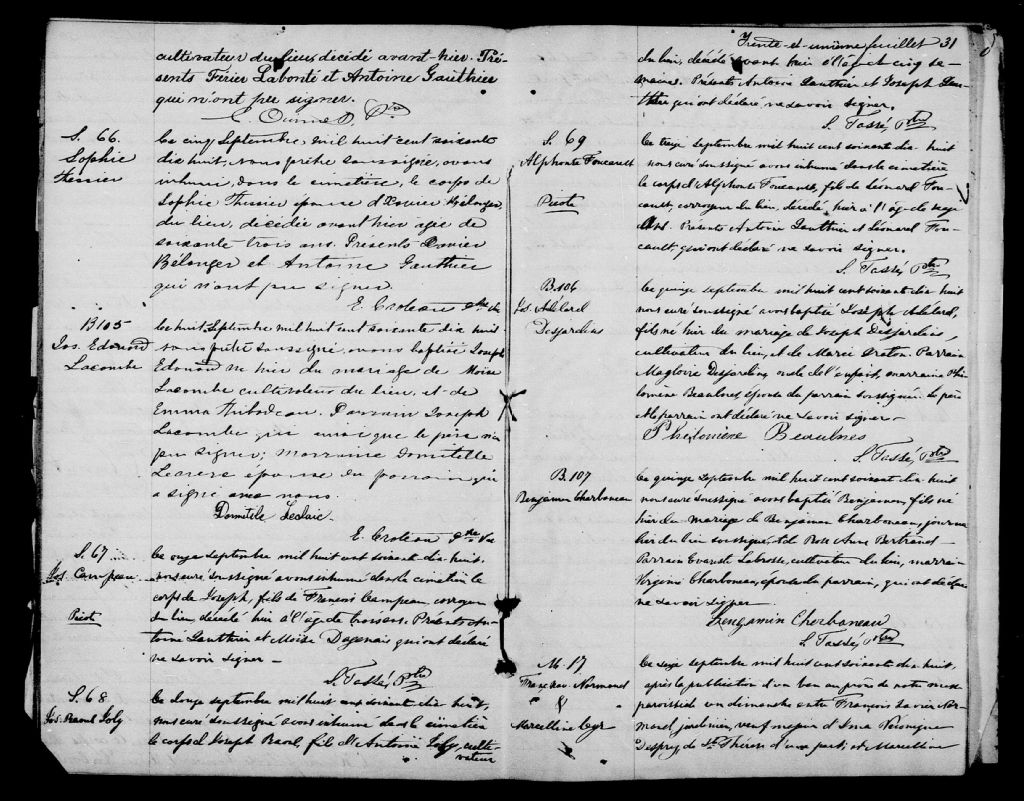 cultivateur du lieu, décédé avant-hier. Pré-
sents Férier Labonté et Antoine Gauthier
qui n'ont pu signer.
S. 66.
Sophie
Tessier
Le cinq Septembre, mil huit cent soixante
dix huit, nous prêtre soussigné, avons
inhumé, dans le cimetière, le corps de
Sophie Thessier épouse d'Xavier Bélanger,
du lieu, décédée avant hier âgée de
soixante trois ans. Présents Xavier
Bélanger et Antoine Gauthier
qui n'ont pu signer.
E. Croteau Ptre Vic
B105
Jos. Edouard
Lacombe
Le huit, Septembre mil huit cent soixante dix huit
nous prêtre soussigné, avons baptisé Joseph
Edouard né hier du mariage de Moïse
Lacombe cultivateur du lieu, et de
Emma Thibodeau. Parrain Joseph
Lacombe qui ainsi que le père n'a
pu signer; Marraine Domitille
Leclerc épouse du parrain qui
a signé avec nous.
Domitile Leclaic.
E. Croteau Ptre Vic
S. 67
Jos. Campeau
Picote
Le onze septembre mil huit cent soixante dix-huit,
nous curé soussigné avons inhumé dans le cimetière le
corps de Joseph, fils de François Campeau, corroyeur
du lieu, décédé hier à l'âge de trois ans. Présents An-
toine Gauthier et Moïse Dagenais qui ont déclaré
ne savoir signer —
S. Tassé, Ptre
S. 68
Jos. Raoul Joly
Le douze septembre mil huit cent soixante dix huit,
nous curé soussigné avons inhumé dans le cimetière
le corps d'Joseph Raoul, fils d'Antoine Joly, culti-
vateur
Trente-et-unième feuillet 31
du lieu, décédé avant hier à l'âge et cinq se-
maines. Présents Antoine Gauthier et Joseph Gau-
thier qui ont déclaré ne savoir signer.
S. Tassé, Ptre
S. 69
Alphonse Foucault
Picote
Le treize septembre mil huit cent soixante dix huit
nous curé soussigné avons inhumé dans le cimetière
le corps d'Alphonse Foucault, fils de Léonard Fou-
cault, corroyeur du lieu, décédé hier à l'âge de
ans. Présents Antoine Gauthier et Léonard Fou-
cault, qui ont déclaré ne savoir signer.
S. Tassé, Ptre
B.106
Jos. Adélard
Desjardins
Le quinze septembre mil huit cent soixante dix huit
nous curé soussigné avons baptisé Joseph Adélard,
fils né hier du mariage de Joseph Desjardins,
cultivateur du lieu, et de Marie Graton. Parrain
Magloire Desjardins oncle de l'enfant, marraine Phi-
lomène Beaulnes, épouse du parrain soussignée. Le père
& le parrain ont déclaré ne savoir signer —
Philomène Beaulnes
S. Tassé, Ptre
B.107
Benjamin Charboneau
Le quinze septembre mil huit cent soixante dix-huit
nous curé soussigné avons baptisé Benjamin, fils né
hier du mariage de Benjamin Charboneau, journa-
lier du lieu soussigné, et de Rose Anne Bertrand —
Parrain Evariste Labrosse, cultivateur du lieu, marrai-
ne Virginie Charboneau, épouse du parrain, qui ont déclaré
ne savoir signer —
Benjamin Charboneau
S. Tassé, Ptre
M. 17
Franç Xav. Normand
&
Marcelline Cyr
Le seize septembre mil huit cent soixante dix huit,
après la publication d'un ban au prône de notre messe
paroissiale un dimanche entre François Xavier Nor-
mand, jardinier, veuf majeur d'Ema Véronique
Desprez de Ste Thérèse d'une part; et Marcelline